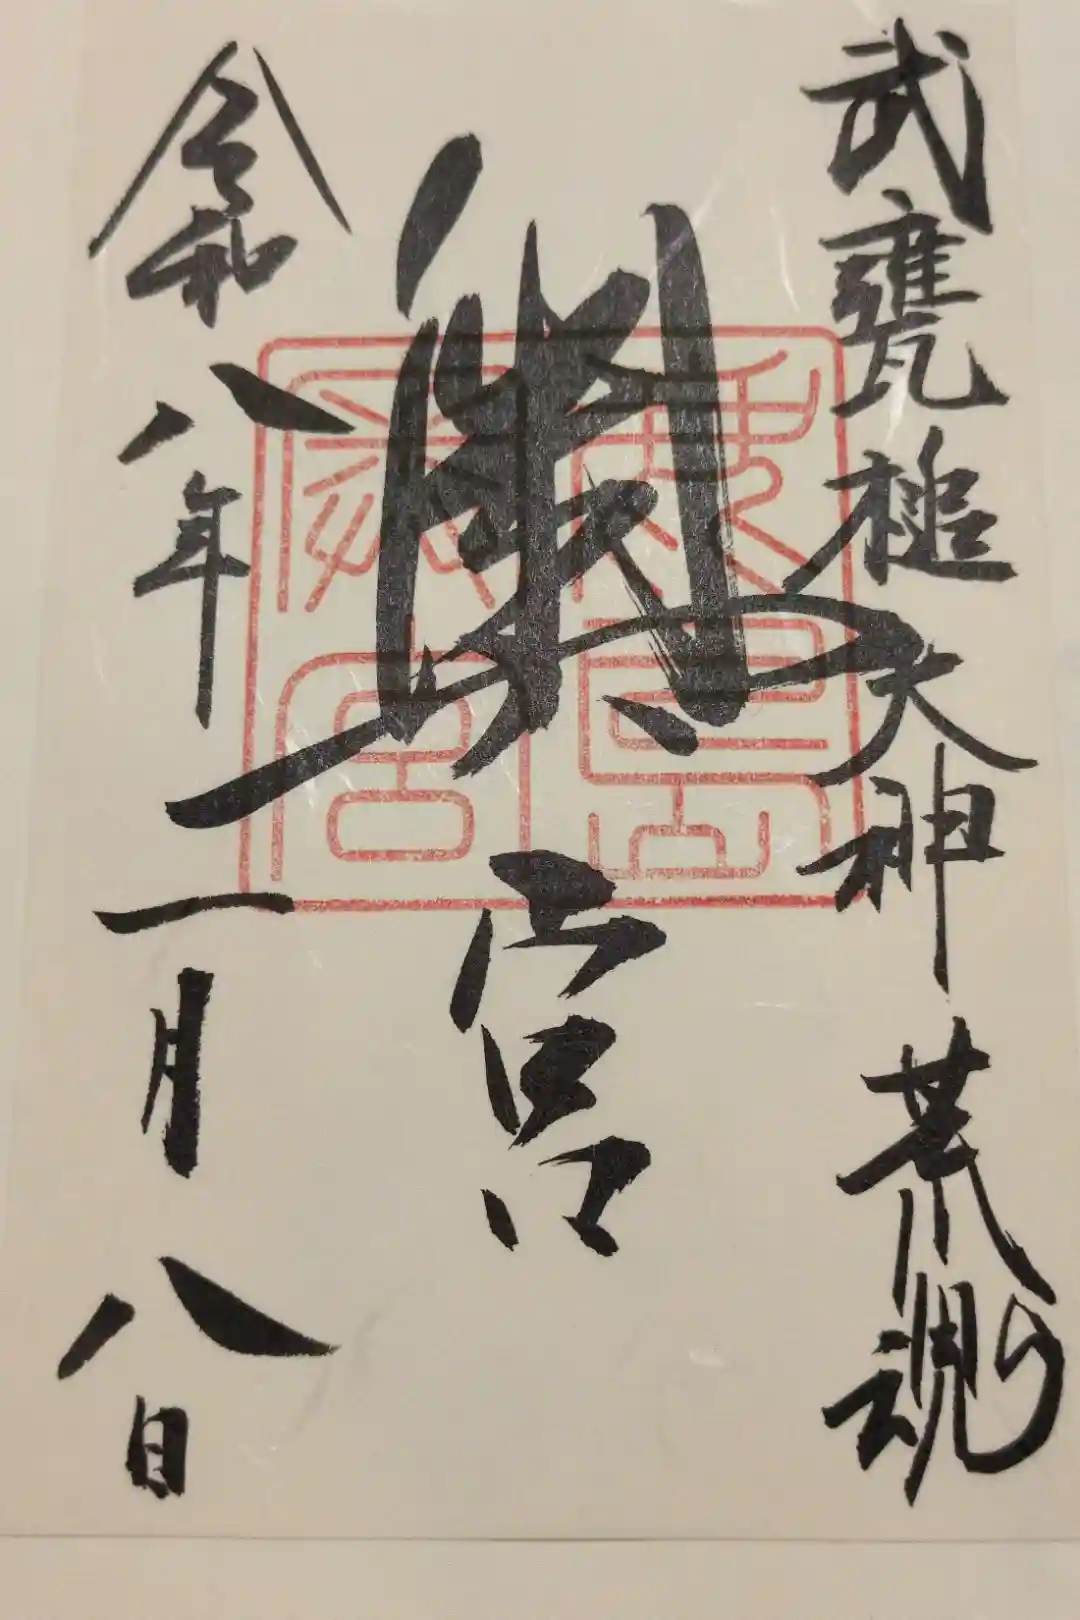 武甕槌大神 荒魂
奥宮
鹿島
奥宮
令和八年一月八日